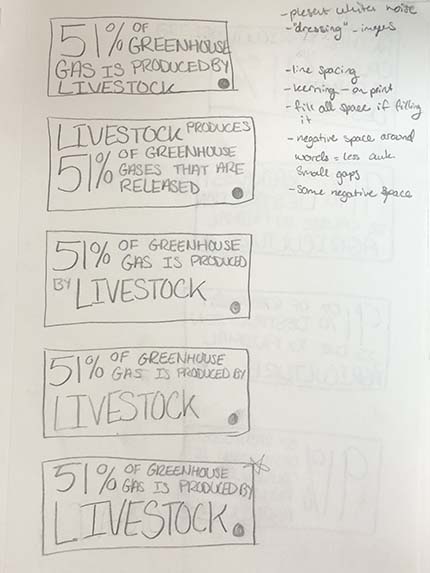 51% OF
GREENHOUSE
GAS IS PRODUCED BY
LIVESTOCK
LIVESTOCK PRODUCES
51% OF GREENHOUSE
GASES THAT ARE
RELEASED
51% OF GREENHOUSE
GAS IS PRODUCED
BY LIVESTOCK
51% OF GREENHOUSE
GAS IS PRODUCED BY
LIVESTOCK
51% OF GREENHOUSE
GAS IS PRODUCED BY
LIVESTOCK
- present noise
- "dressing" - images
- line spacing
- kerning - on print
- fill all space if filling
it
- negative space around
words = less awk
small gaps
- some negative space